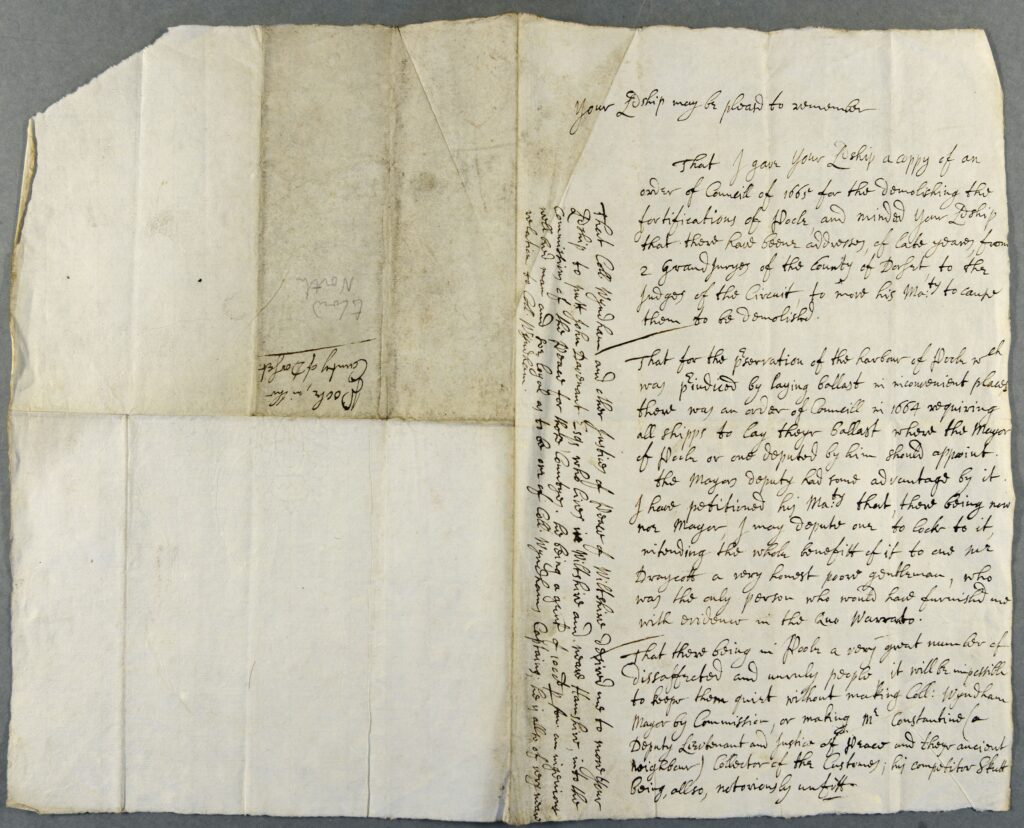 Your Lordship may be pleasd to remember
That I gave Your Lordship a coppy of an
order of Councill of 1665 for the demolishing the
fortifications of Poole and minded Your Lordship
that there have beene addresses, of late yeares, from
2 Grandjuryes of the County of Dorset to the
Judges of the Circuit, to move his Ma:ty to cause
them to be demolishd.
That for the pservation of the harbour of Poole wch
was pjudiced by laying ballast in inconvenient places
there was an order of Councill in 1664 requiring
all shipps to lay their ballast where the Mayor
of Poole or one deputed by him should appoint.
the Mayors deputy had some advantage by it.
I have petitioned his Ma:ty that, there being now
noe Mayor, I may depute one to looke to it,
intending the whole benefitt of it to one mr
Draycott a very honest poore gentleman, who
was the only person who would have furnishd me
with evidence in the Quo Warranto.
That there being in Poole a very great number of
dissaffected and unruly people, it will be impossible
to keepe them quiet without making Coll: Wyndham
Mayor by Commission, or making Mr Constantine (a
Deputy Lieutenant and Justice of the Peace and their ancient
neighbour) Collector of the Customes; his competitor Skutt
being, allso, notoriously unfitt.
That Coll Wyndham, and other Justices of Peace of Wiltshire desired me to move Your
Lordship to putt John Davenant Esq, who lives in Wiltshire and neare Hamshire, into the
Commissions of the Peace for those Countyes. he being a gent: of 1000l p An: an ingenious
well bred man and soe loyal as to be one of Coll Wyndhams Captains; he is allso of very neare
relation to Coll Wyndham.
Poole, in the
County of Dorset
Ld
North